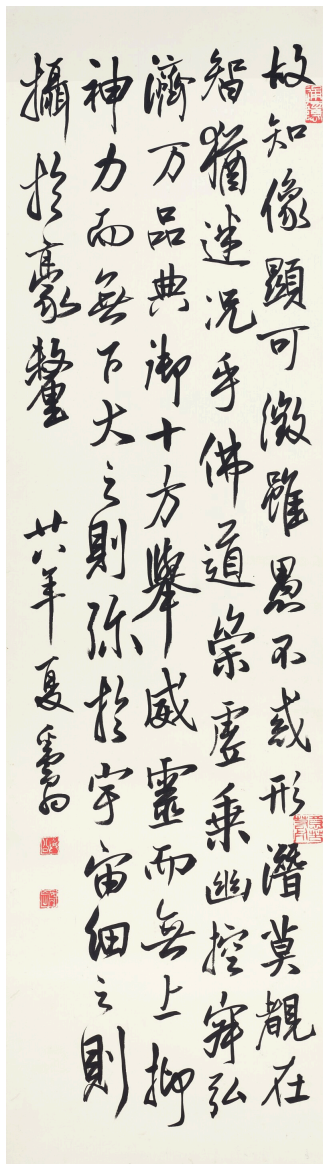 故知像顯可徵雖愚不惑形潛莫覩在
智猶迷况乎佛道崇虛乘幽控寂弘
濟万品典御十方舉威靈而無上抑
神力而無下大之則弥於宇宙細之則
攝於豪釐
廿八年夏